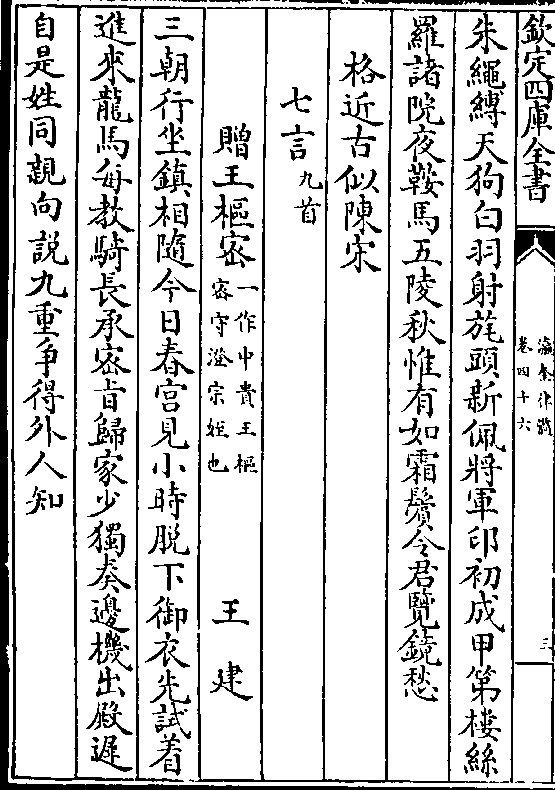 欽定四庫全書
瀛奎律髓
卷四十六
三
朱繩縛天狗白羽射旄頭新佩將軍印初成甲第樓絲
羅諸院夜鞍馬五陵秋惟有如霜鬢令君覽鏡愁
格近古似陳宋
七言九首
贈王樞密一作中貴王樞密守澄宗姪也 王建
三朝行坐鎮相隨今日春宮見小時脱下御衣先試着
進來龍馬每教騎長承密旨歸家少獨奏邊機出殿遲
自是姓同親向説九重爭得外人知